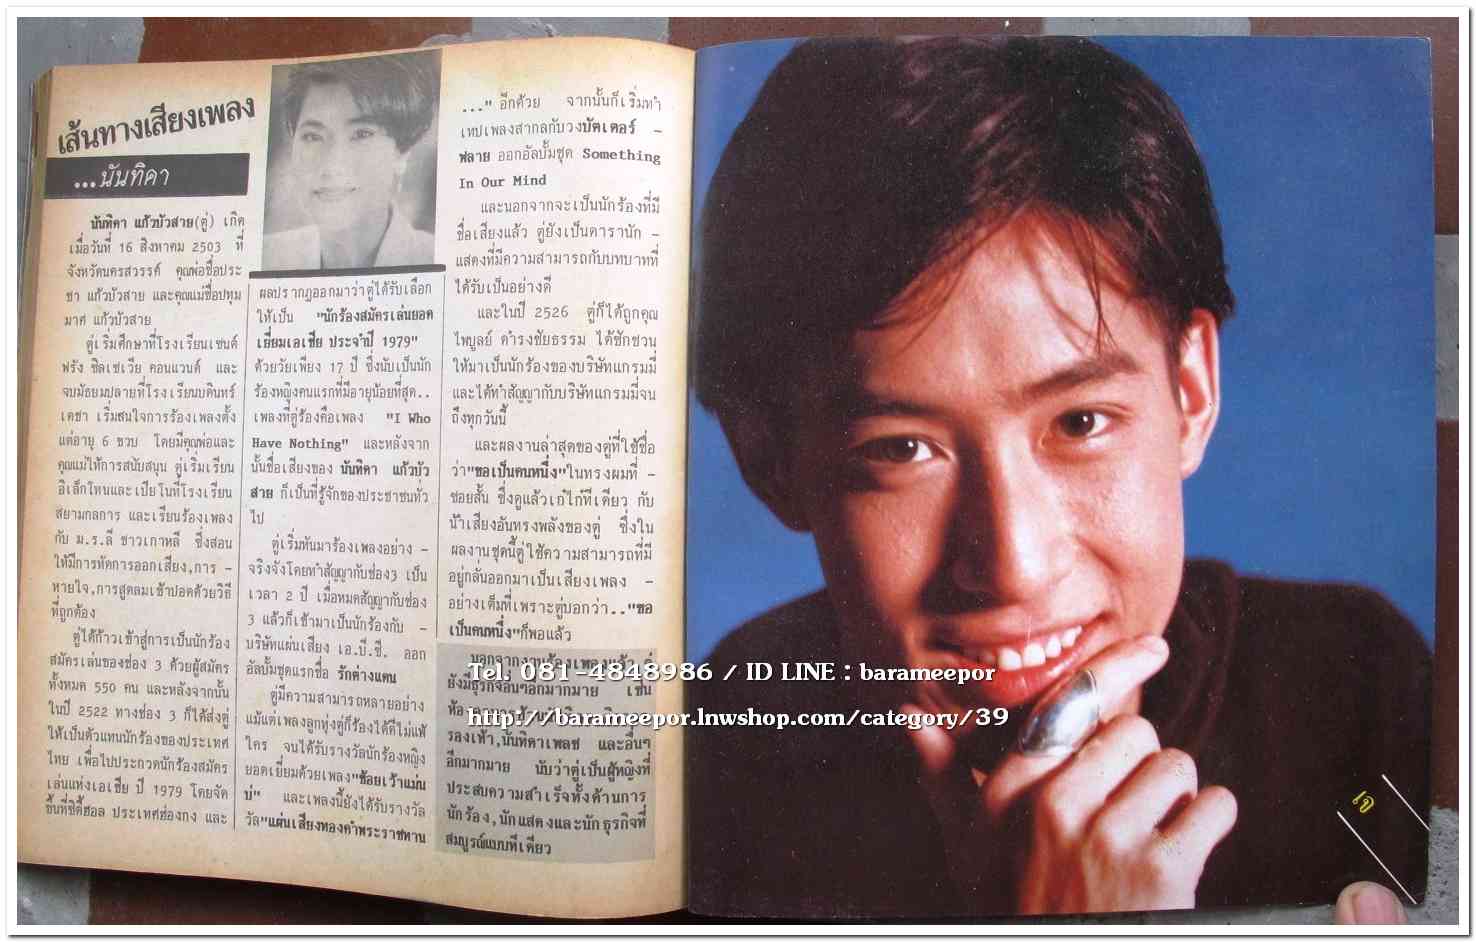 เส้นทางเสียงเพลง
...นันทิดา
นันทิดา แก้วบัวสาย(ตู่) เกิด
เมื่อวันที่ 16 สิงหาคม 2503 ที่
จังหวัดนครสวรรค์ คุณพ่อชื่อประ
ชา แก้วบัวสาย และคุณแม่ชื่อปทุม
มาศ แก้วบัวสาย
ตู่เริ่มศึกษาที่โรงเรียนเซนต์
ฟรัง ซิลเซเวีย คอนแวนต์ และ
จบมัธยมปลายที่โรงเรียนบดินทร์
เดชา เริ่มสนใจการร้องเพลงตั้ง
แต่อายุ 6 ขวบ โดยมีคุณพ่อและ
คุณแม่ให้การสนับสนุน ตู่เริ่มเรียน
อิเล็กโทนและเปียโนที่โรงเรียน
สยามกลการ และเรียนร้องเพลง
กับ ม.ร.ลี ชาวเกาหลี ซึ่งสอน
ให้มีการหัดการออกเสียง,การ -
หายใจ,การสูดลมเข้าปอดด้วยวิธี
ที่ถูกต้อง
ตู่ได้ก้าวเข้าสู่การเป็นนักร้อง
สมัครเล่นของช่อง 3 ด้วยผู้สมัคร
ทั้งหมด 550 คน และหลังจากนั้น
ในปี 2522 ทางช่อง 3 ก็ได้ส่งตู่
ให้เป็นตัวแทนนักร้องของประเทศ
ไทย เพื่อไปประกวดนักร้องสมัคร
เล่นแห่งเอเชีย ปี 1979 โดยจัด
ขึ้นที่ซิตี้ฮอล ประเทศฮ่องกง และ
ผลปรากฏออกมาว่าตู่ได้รับเลือก
ให้เป็น "นักร้องสมัครเล่นยอด
เยี่ยมเอเชีย ประจำปี 1979"
ด้วยวัยเพียง 17 ปี ซึ่งนับเป็นนัก
ร้องหญิงคนแรกที่มีอายุน้อยที่สุด..
เพลงที่ตู่ร้องคือเพลง "I Who
Have Nothing" และหลังจาก
นั้นชื่อเสียงของ นันทิดา แก้วบัว
สาย ก็เป็นที่รู้จักของประชาชนทั่ว
ไป
ตู่เริ่มหันมาร้องเพลงอย่าง -
จริงจังโดยทำสัญญากับช่อง3 เป็น
เวลา 2 ปี เมื่อหมดสัญญากับช่อง
3 แล้วก็เข้ามาเป็นนักร้องกับ -
บริษัทแผ่นเสียง เอ.บี.ซี. ออก
อัลบั้มชุดแรกชื่อ รักต่างแดน
ตู่มีความสามารถหลายอย่าง
แม้แต่เพลงลูกทุ่งตู่ก็ร้องได้ดีไม่แพ้
ใคร จนได้รับรางวัลนักร้องหญิง
ยอดเยี่ยมด้วยเพลง"ข้อยเว้าแม่น
บ่" และเพลงนี้ยังได้รับรางวัล
วัล"แผ่นเสียงทองคำพระราชทาน
..." อีกด้วย จากนั้นก็เริ่มทำ
เทปเพลงสากลกับวงบัตเตอร์ -
ฟลาย ออกอัลบั้มชุด Something
In Our Mind
และนอกจากจะเป็นนักร้องที่มี
ชื่อเสียงแล้ว ตู่ยังเป็นดารานัก -
แสดงที่มีความสามารถกับบทบาทที่
ได้รับเป็นอย่างดี
และในปี 2526 ตู่ก็ได้ถูกคุณ
ไพบูลย์ ดำรงชัยธรรม ได้ชักชวน
ให้มาเป็นนักร้องของบริษัทแกรมมี่
และได้ทำสัญญากับบริษัทแกรมมี่จน
ถึงทุกวันนี้
และผลงานล่าสุดของตู่ที่ใช้ชื่อ
ว่า"ขอเป็นคนหนึ่ง"ในทรงผมที่ -
ซอยสั้น ซึ่งดูแล้วเก๋ไก๋ทีเดียว กับ
น้ำเสียงอันทรงพลังของตู่ ซึ่งใน
ผลงานชุดนี้ตู่ใช้ความสามารถที่มี
อยู่กลั่นออกมาเป็นเสียงเพลง -
อย่างเต็มที่เพราะตู่บอกว่า.."ขอ
เป็นคนหนึ่ง"ก็พอแล้ว
ยังมีธุรกิจอื่นๆอีกมากมาย เช่น
รองเท้า,นันทิดาเพลซ และอื่นๆ
อีกมากมาย นับว่าตู่เป็นผู้หญิงที่
ประสบความสำเร็จทั้งด้านการ
นักร้อง,นักแสดงและนักธุรกิจที่
สมบูรณ์แบบทีเดียว
Tel. 081-4848986 / ID LINE : barameepor
http://barameepor.lnwshop.com/category/39
เจ